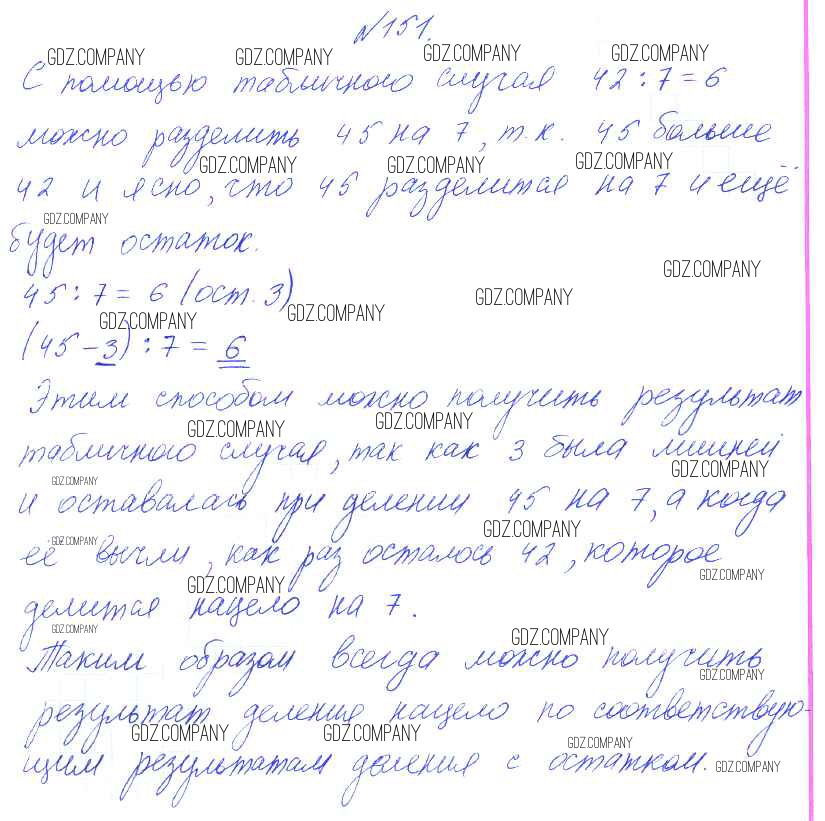 №151.
GDZ.COMPANY GDZ.COMPANY GDZ.COMPANY GDZ.COMPANY
С помощью табличного случая 42 : 7 = 6
можно разделить 45 на 7, т.к. 45 больше
GDZ.COMPANY GDZ.COMPANY GDZ.COMPANY
42 и ясно, что 45 разделится на 7 и ещё
GDZ.COMPANY
будет остаток.
GDZ.COMPANY
45 : 7 = 6 (ост. 3)
GDZ.COMPANY GDZ.COMPANY GDZ.COMPANY
(45 - 3) : 7 = 6
Этим способом можно получить результат
GDZ.COMPANY GDZ.COMPANY
табличного случая, так как 3 была лишней
GDZ.COMPANY GDZ.COMPANY
и оставалась при делении 45 на 7, а когда
GDZ.COMPANY GDZ.COMPANY
её вычли, как раз осталось 42, которое
GDZ.COMPANY GDZ.COMPANY
делится нацело на 7.
GDZ.COMPANY GDZ.COMPANY
Таким образом всегда можно получить
GDZ.COMPANY
результат деления нацело по соответствую-
GDZ.COMPANY GDZ.COMPANY GDZ.COMPANY
щим результатам деления с остатком.
GDZ.COMPANY